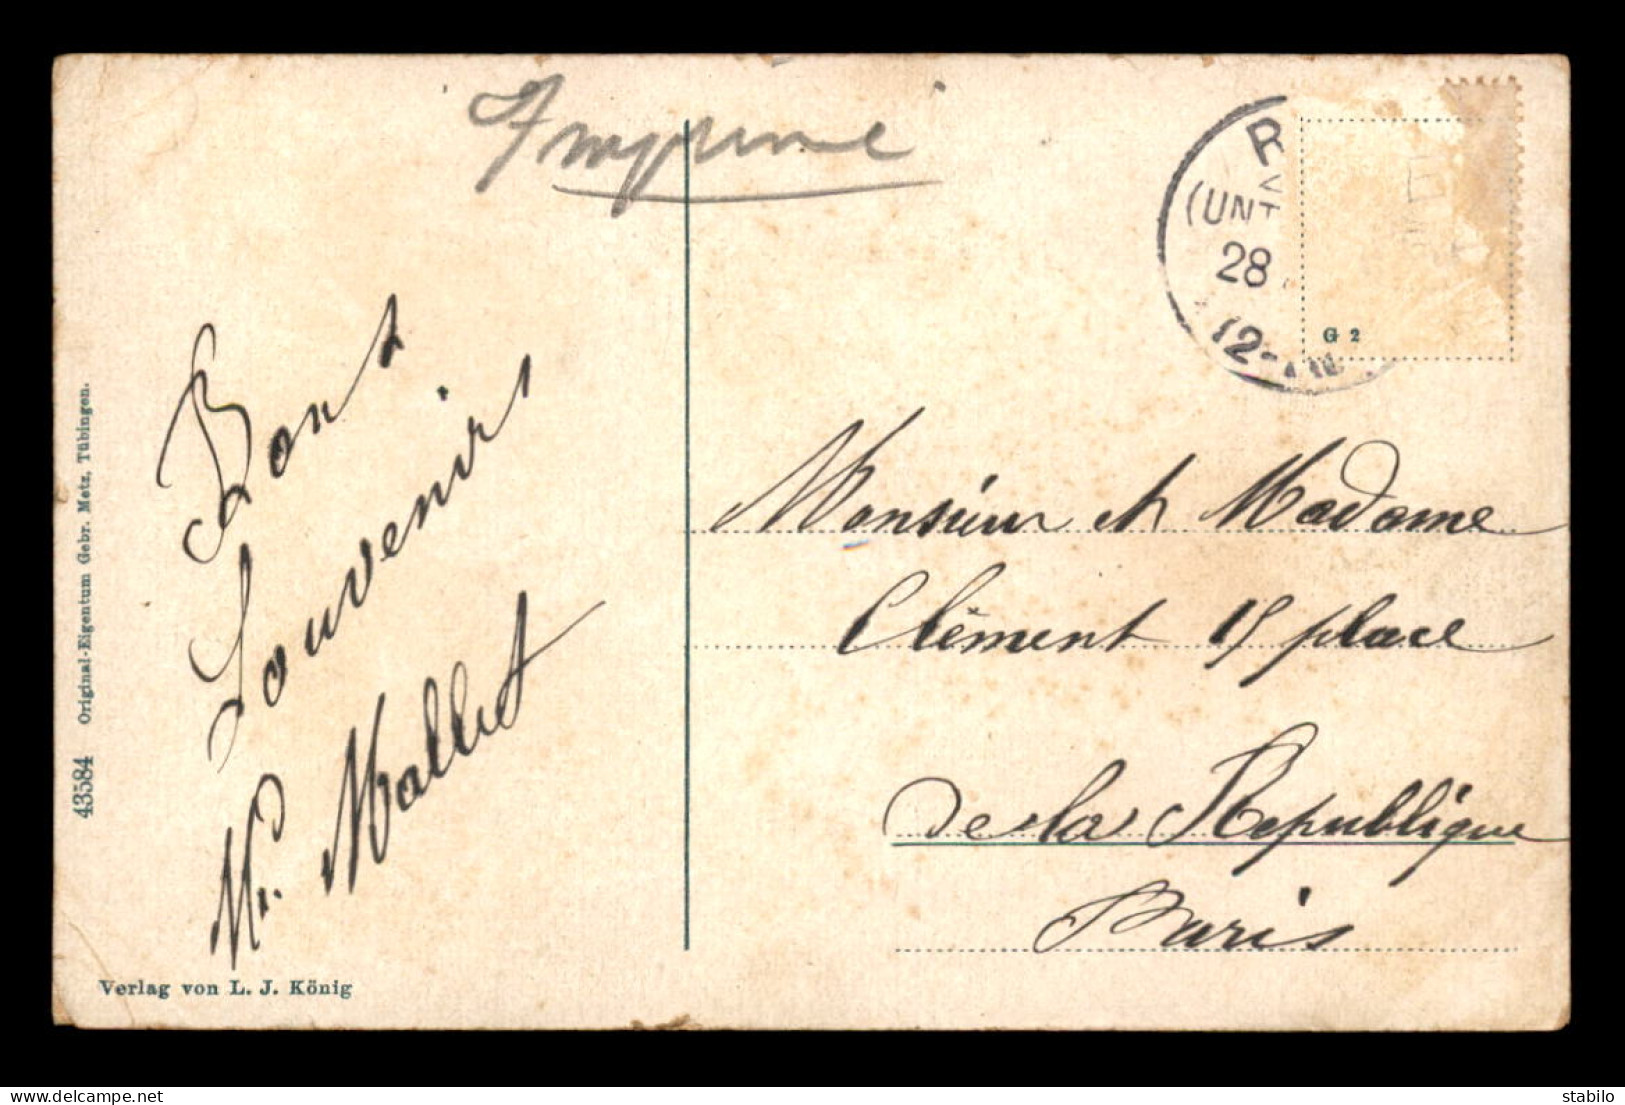 Imprimé
(UNT
28
12-1N
G 2
Bons
Souvenirs
Mr. Mallet
Monsieur et Madame
Clément 15 place
de la Republique
Paris
43584 Original-Eigentum Gebr. Metz, Tübingen.
Verlag von L. J. König
delcampe.net
stabilo